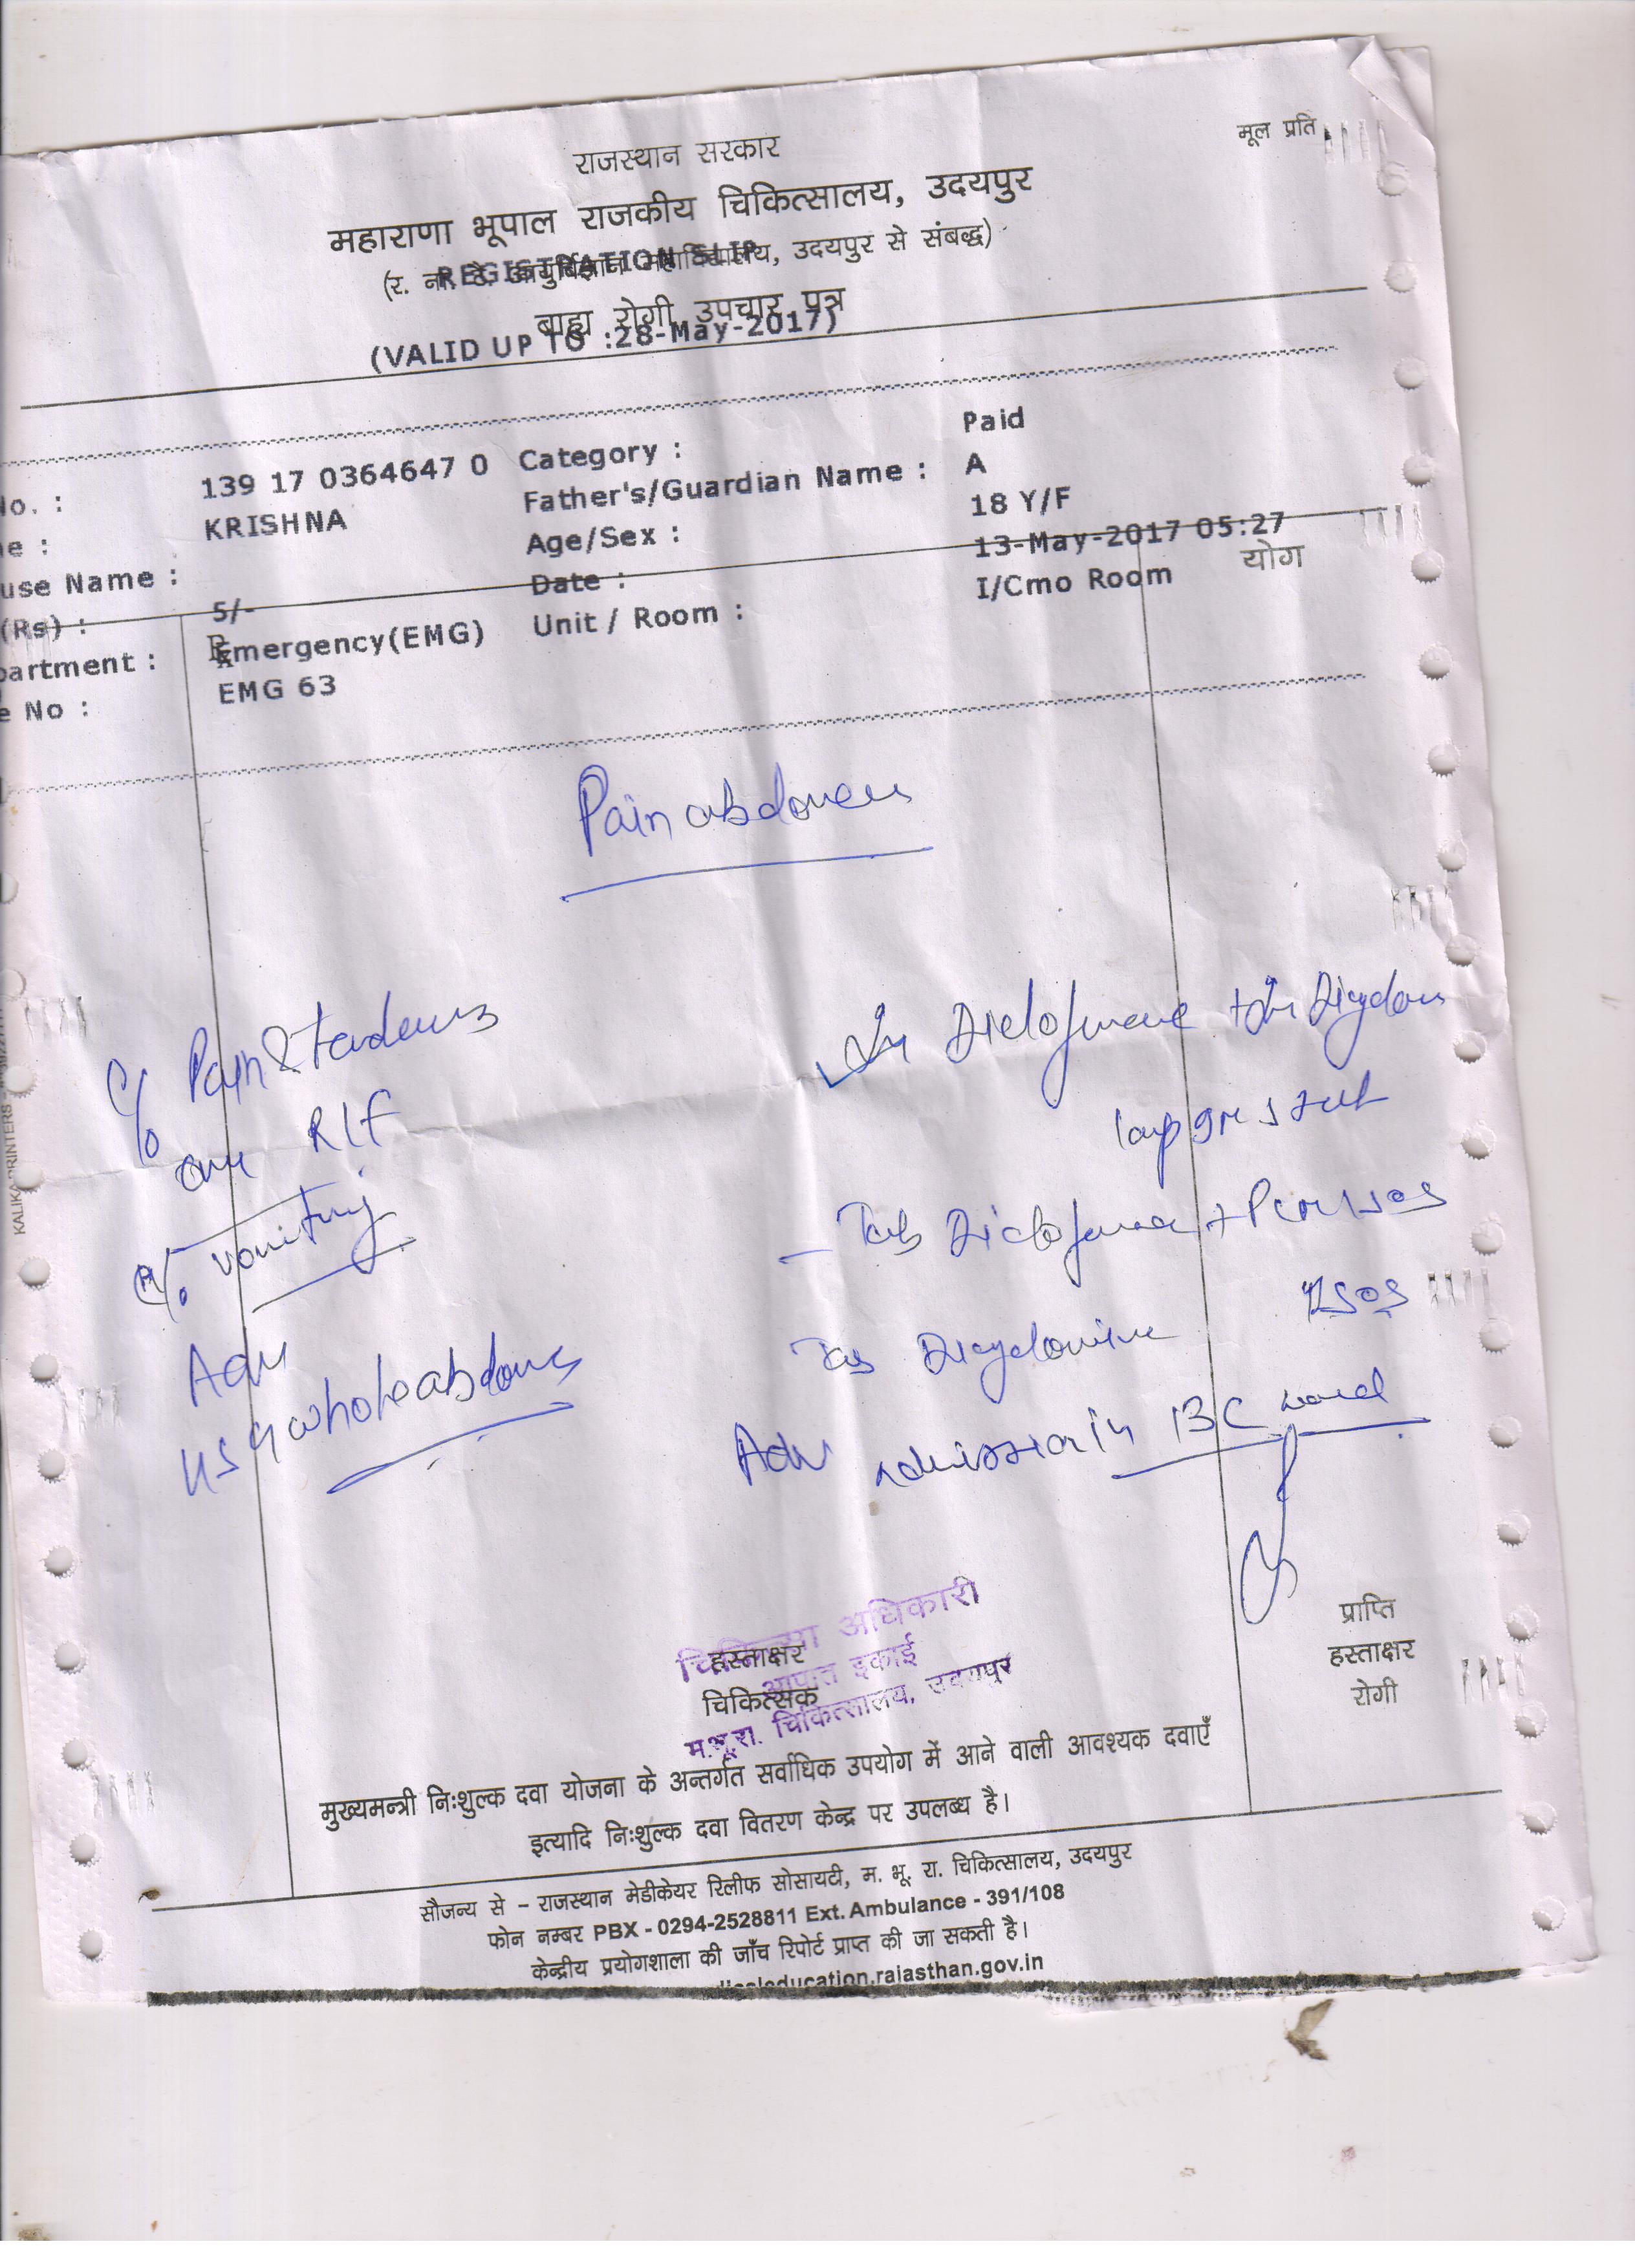 मूल प्रति
राजस्थान सरकार
महाराणा भूपाल राजकीय चिकित्सालय, उदयपुर
(र. ना. टै. आयुर्विज्ञान महाविद्यालय, उदयपुर से संबद्ध)
REGISTRATION SLIP
बाह्य रोगी उपचार पत्र
(VALID UP TO :28-May-2017)
No. : 139 17 0364647 0 Category : Paid
e : KRISHNA Father's/Guardian Name : A
use Name : Age/Sex : 18 Y/F
(Rs) : 5/- Date : 13-May-2017 05:27
partment : Emergency(EMG) Unit / Room : I/Cmo Room
योग
e No : EMG 63
Rx
Pain abdomen
c/o Pain &
RIF
vomiting
Adv
USG whole abdomen
+
Tab
Tab Dicyclomine
Adv admission in BC ward
KALIKA PRINTERS
चिकित्सा अधिकारी
आपात इकाई
म.भू.रा. चिकित्सालय, उदयपुर
हस्ताक्षर
चिकित्सक
प्राप्ति
हस्ताक्षर
रोगी
मुख्यमन्त्री निःशुल्क दवा योजना के अन्तर्गत सर्वाधिक उपयोग में आने वाली आवश्यक दवाएँ
इत्यादि निःशुल्क दवा वितरण केन्द्र पर उपलब्ध है।
सौजन्य से - राजस्थान मेडीकेयर रिलीफ सोसायटी, म. भू. रा. चिकित्सालय, उदयपुर
फोन नम्बर PBX - 0294-2528811 Ext. Ambulance - 391/108
केन्द्रीय प्रयोगशाला की जाँच रिपोर्ट प्राप्त की जा सकती है।
education.rajasthan.gov.in